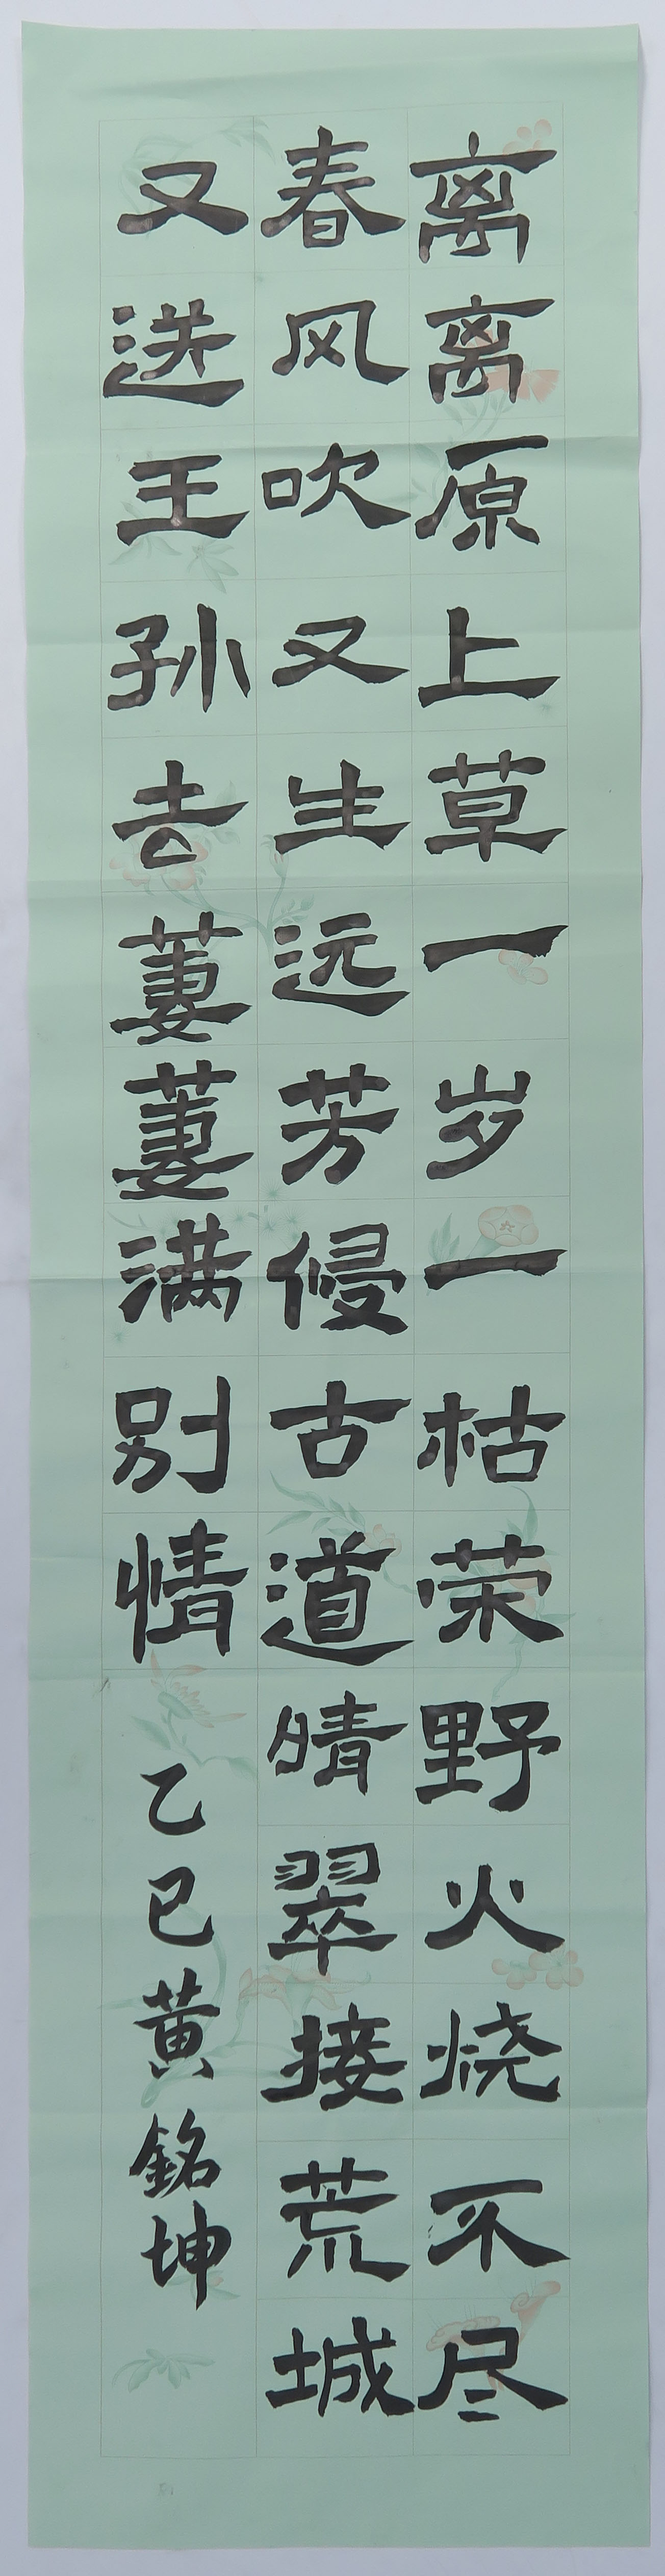 离离原上草一岁一枯荣野火烧不尽
春风吹又生远芳侵古道晴翠接荒城
又送王孙去萋萋满别情
乙巳黄銘坤